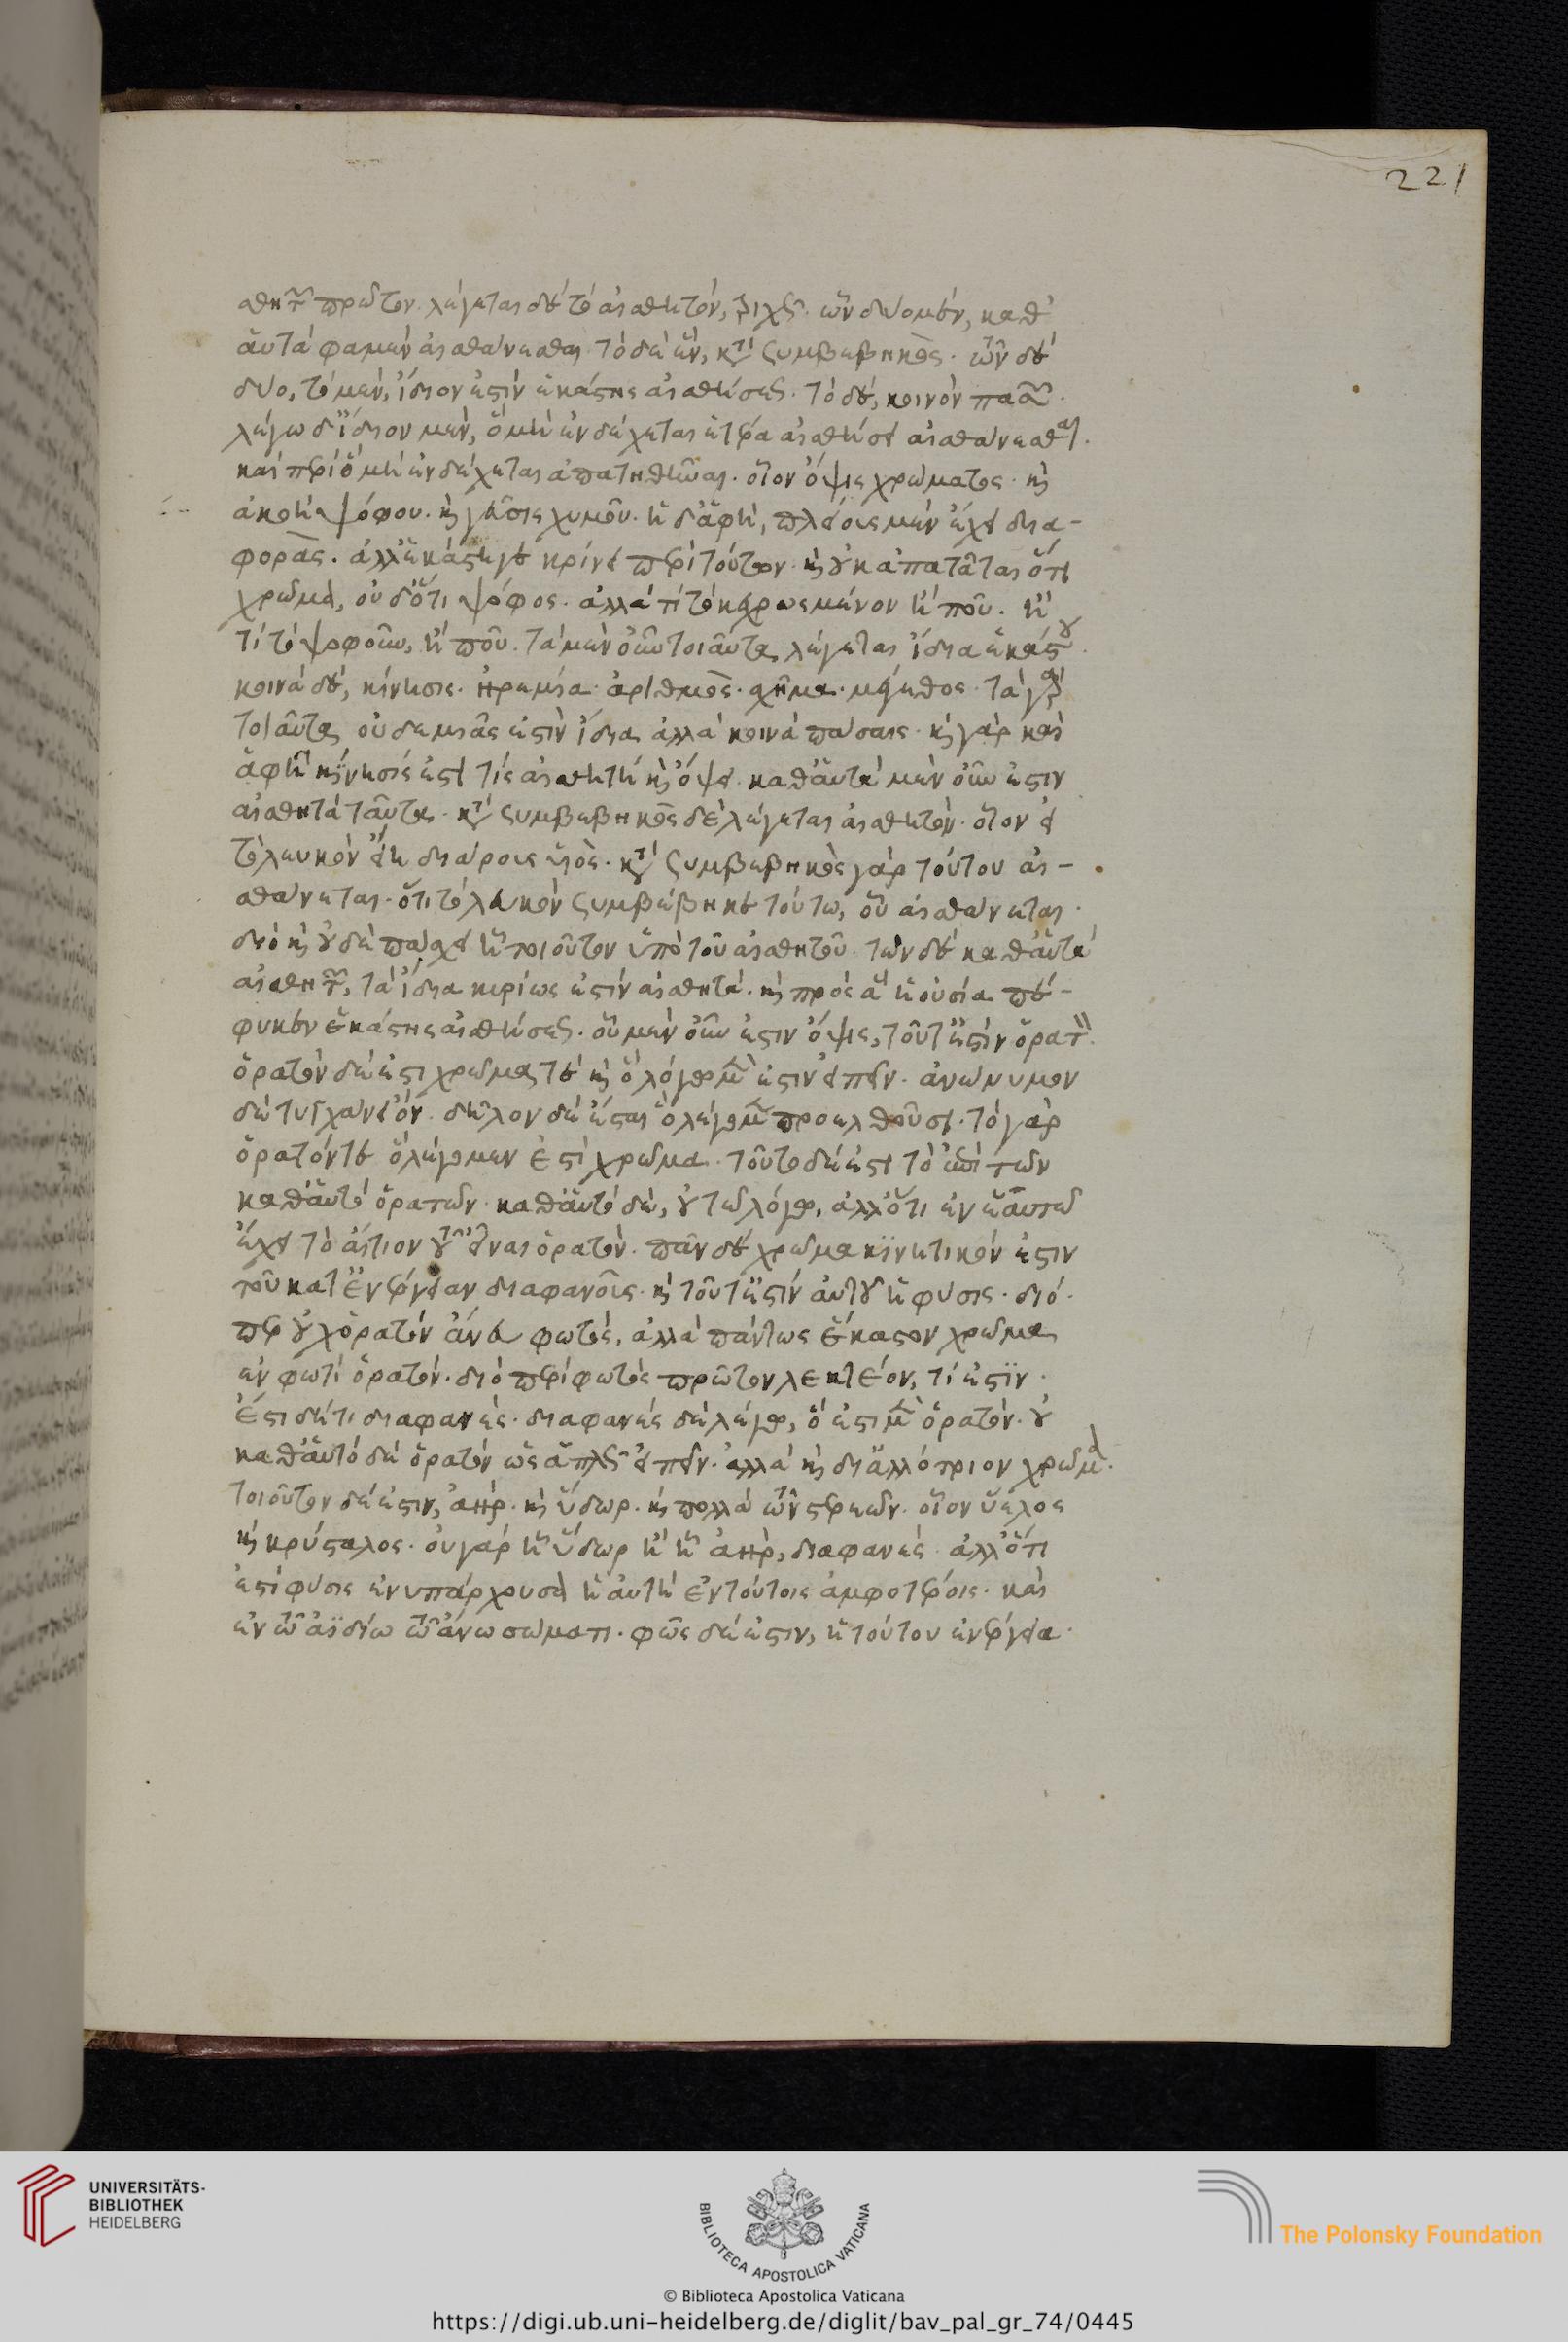 221
σθητῶν πρῶτον. λέγεται δὲ τὸ αἰσθητόν, τριχῶς. ὧν δύο μὲν, καθ'
αὑτά φαμεν αἰσθάνεσθαι τὸ δὲ ἓν, κατὰ συμβεβηκὸς. τῶν δὲ
δύο, τὸ μὲν, ἴδιον ἐστὶν ἑκάστης αἰσθήσεως. τὸ δὲ, κοινὸν πασῶν.
λέγω δ' ἴδιον μὲν, ὃ μὴ ἐνδέχεται ἑτέρα αἰσθήσει αἰσθάνεσθαι.
καὶ περὶ ὃ μὴ ἐνδέχεται ἀπατηθῆναι. οἷον ὄψις χρώματος. καὶ
ἀκοὴ ψόφου. καὶ γεῦσις χυμοῦ. ἡ δ' ἁφὴ, πλείους μὲν ἔχει δια-
φορὰς. ἀλλ' ἑκάστη γε κρίνει περὶ τούτων. καὶ οὐκ ἀπατᾶται ὅτι
χρῶμα, οὐδ' ὅτι ψόφος. ἀλλὰ τί τὸ κεχρωσμένον ἢ ποῦ. ἢ
τί τὸ ψοφοῦν, ἢ ποῦ. τὰ μὲν οὖν τοιαῦτα λέγεται ἴδια ἑκάστου.
κοινὰ δὲ, κίνησις. ἠρεμία. ἀριθμὸς. σχῆμα. μέγεθος. τὰ γὰρ
τοιαῦτα οὐδεμιᾶς ἐστὶν ἴδια ἀλλὰ κοινὰ πάσαις. καὶ γὰρ καὶ
ἁφῇ κίνησίς ἐστι τίς αἰσθητὴ καὶ ὄψει. καθ' αὑτὰ μὲν οὖν ἐστιν
αἰσθητὰ ταῦτα. κατὰ συμβεβηκὸς δὲ λέγεται αἰσθητὸν. οἷον εἰ
τὸ λευκὸν εἴη διάρους υἱὸς. κατὰ συμβεβηκὸς γὰρ τούτου αἰ-
σθάνεται. ὅτι τὸ λευκὸν συμβέβηκε τούτω, οὗ αἰσθάνεται.
διὸ καὶ οὐδὲ πάσχει ἢ τοιοῦτον ὑπὸ τοῦ αἰσθητοῦ. τῶν δὲ καθ' αὑτὰ
αἰσθητῶν, τὰ ἴδια κυρίως ἐστὶν αἰσθητά. καὶ πρὸς ἃ ἡ οὐσία πέ-
φυκεν ἑκάστης αἰσθήσεως. οὗ μὲν οὖν ἐστιν ὄψις, τοῦτ' ἐστὶν ὁρατὸν.
ὁρατὸν δέ ἐστι χρῶμα τὲ καὶ ὃ λόγω μὲν ἐστιν εἰπεῖν. ἀνώνυμον
δὲ τυγχάνει ὄν. δῆλον δὲ ἔσται ὃ λέγομεν προελθοῦσι. τὸ γὰρ
ὁρατόν τε ὃ λέγομεν ἐστὶ χρῶμα. τοῦτο δέ ἐστι τὸ ἐπὶ τῶν
καθ' αὑτὸ ὁρατῶν. καθ' αὑτὸ δὲ, οὐ τῶ λόγω, ἀλλ' ὅτι ἐν ἑαυτῶ
ἔχει τὸ αἴτιον τοῦ εἶναι ὁρατὸν. πᾶν δὲ χρῶμα κινητικὸν ἐστιν
τοῦ κατ' ἐνέργειαν διαφανοῦς. καὶ τοῦτ' ἐστὶν αὐτοῦ ἡ φύσις. διό-
περ οὐχ ὁρατὸν ἄνευ φωτὸς, ἀλλὰ πάντως ἕκαστον χρῶμα
ἐν φωτὶ ὁρατόν. διὸ περὶ φωτὸς πρῶτον λεκτέον, τί ἐστϊν.
ἔστι δή τι διαφανὲς. διαφανὲς δὲ λέγω, ὅ ἐστι μὲν ὁρατὸν. οὐ
καθ' αὑτὸ δὲ ὁρατὸν ὡς ἁπλῶς εἰπεῖν. ἀλλὰ καὶ δι' ἀλλότριον χρῶμα.
τοιοῦτον δέ ἐστιν, ἀὴρ. καὶ ὕδωρ. καὶ πολλὰ τῶν στερεῶν. οἷον ὕελος
καὶ κρύσταλος. οὐ γὰρ ἡ ὕδωρ ἢ ἡ ἀὴρ, διαφανὲς. ἀλλ' ὅτι
ἐστὶ φύσις ἐνυπάρχουσα ἡ αὐτὴ ἐν τούτοις ἀμφοτέροις. καὶ
ἐν τῶ ἀϊδίω τῶ ἄνω σώματι. φῶς δέ ἐστιν, ἡ τούτου ἐνέργεια.
UNIVERSITÄTS-
BIBLIOTHEK
HEIDELBERG
BIBLIOTECA APOSTOLICA VATICANA
The Polonsky Foundation
© Biblioteca Apostolica Vaticana
https://digi.ub.uni-heidelberg.de/diglit/bav_pal_gr_74/0445